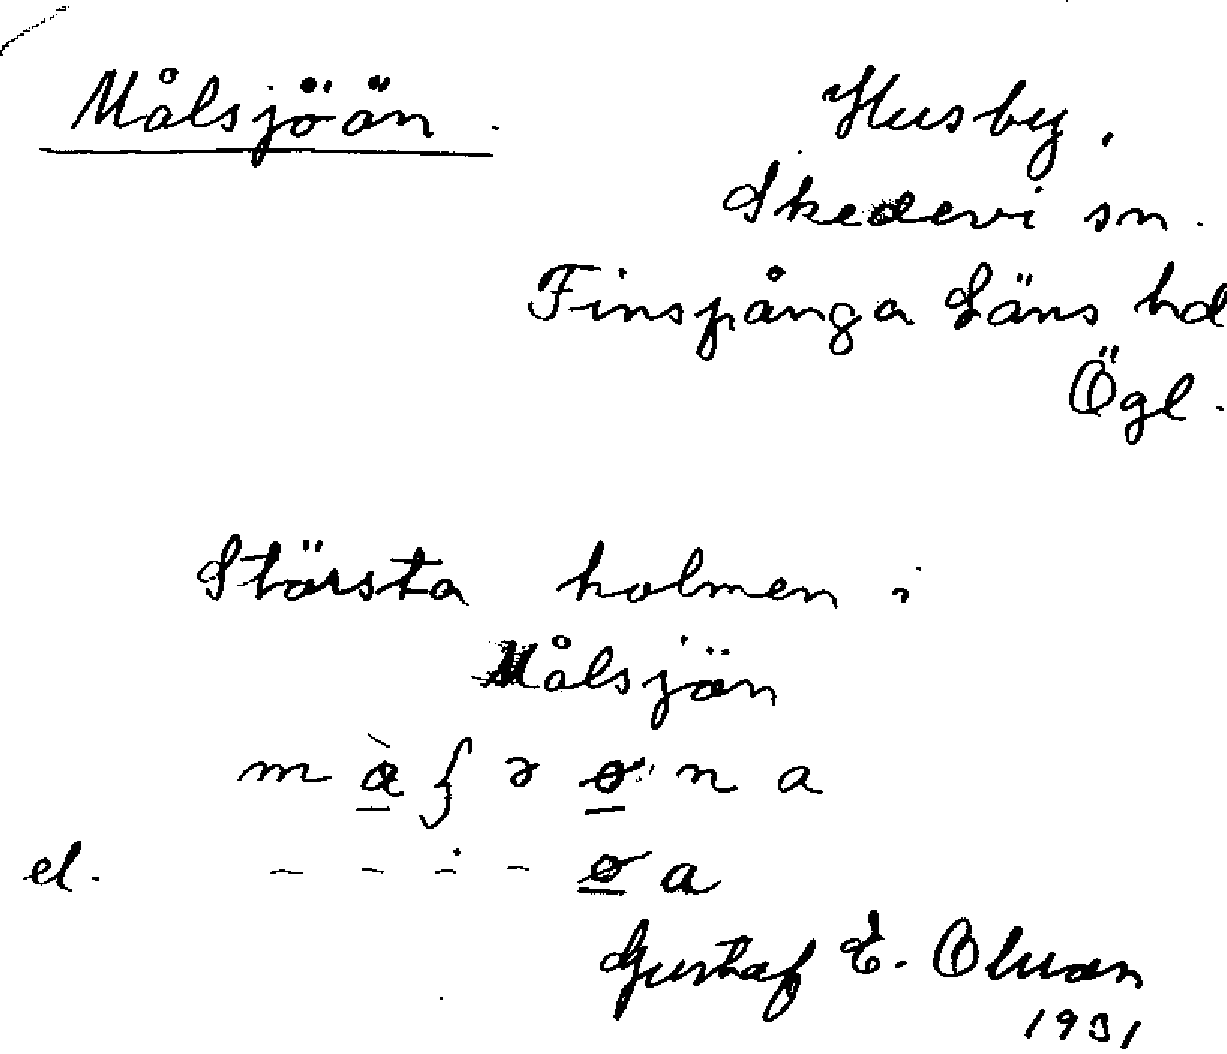 Målsjöän.
Husby,
Skedevi sn.
Finspånga Läns hd
Ögl.
Största holmen i
Målsjön
el. - - - - ø a
Gustaf E. Olsson
1931